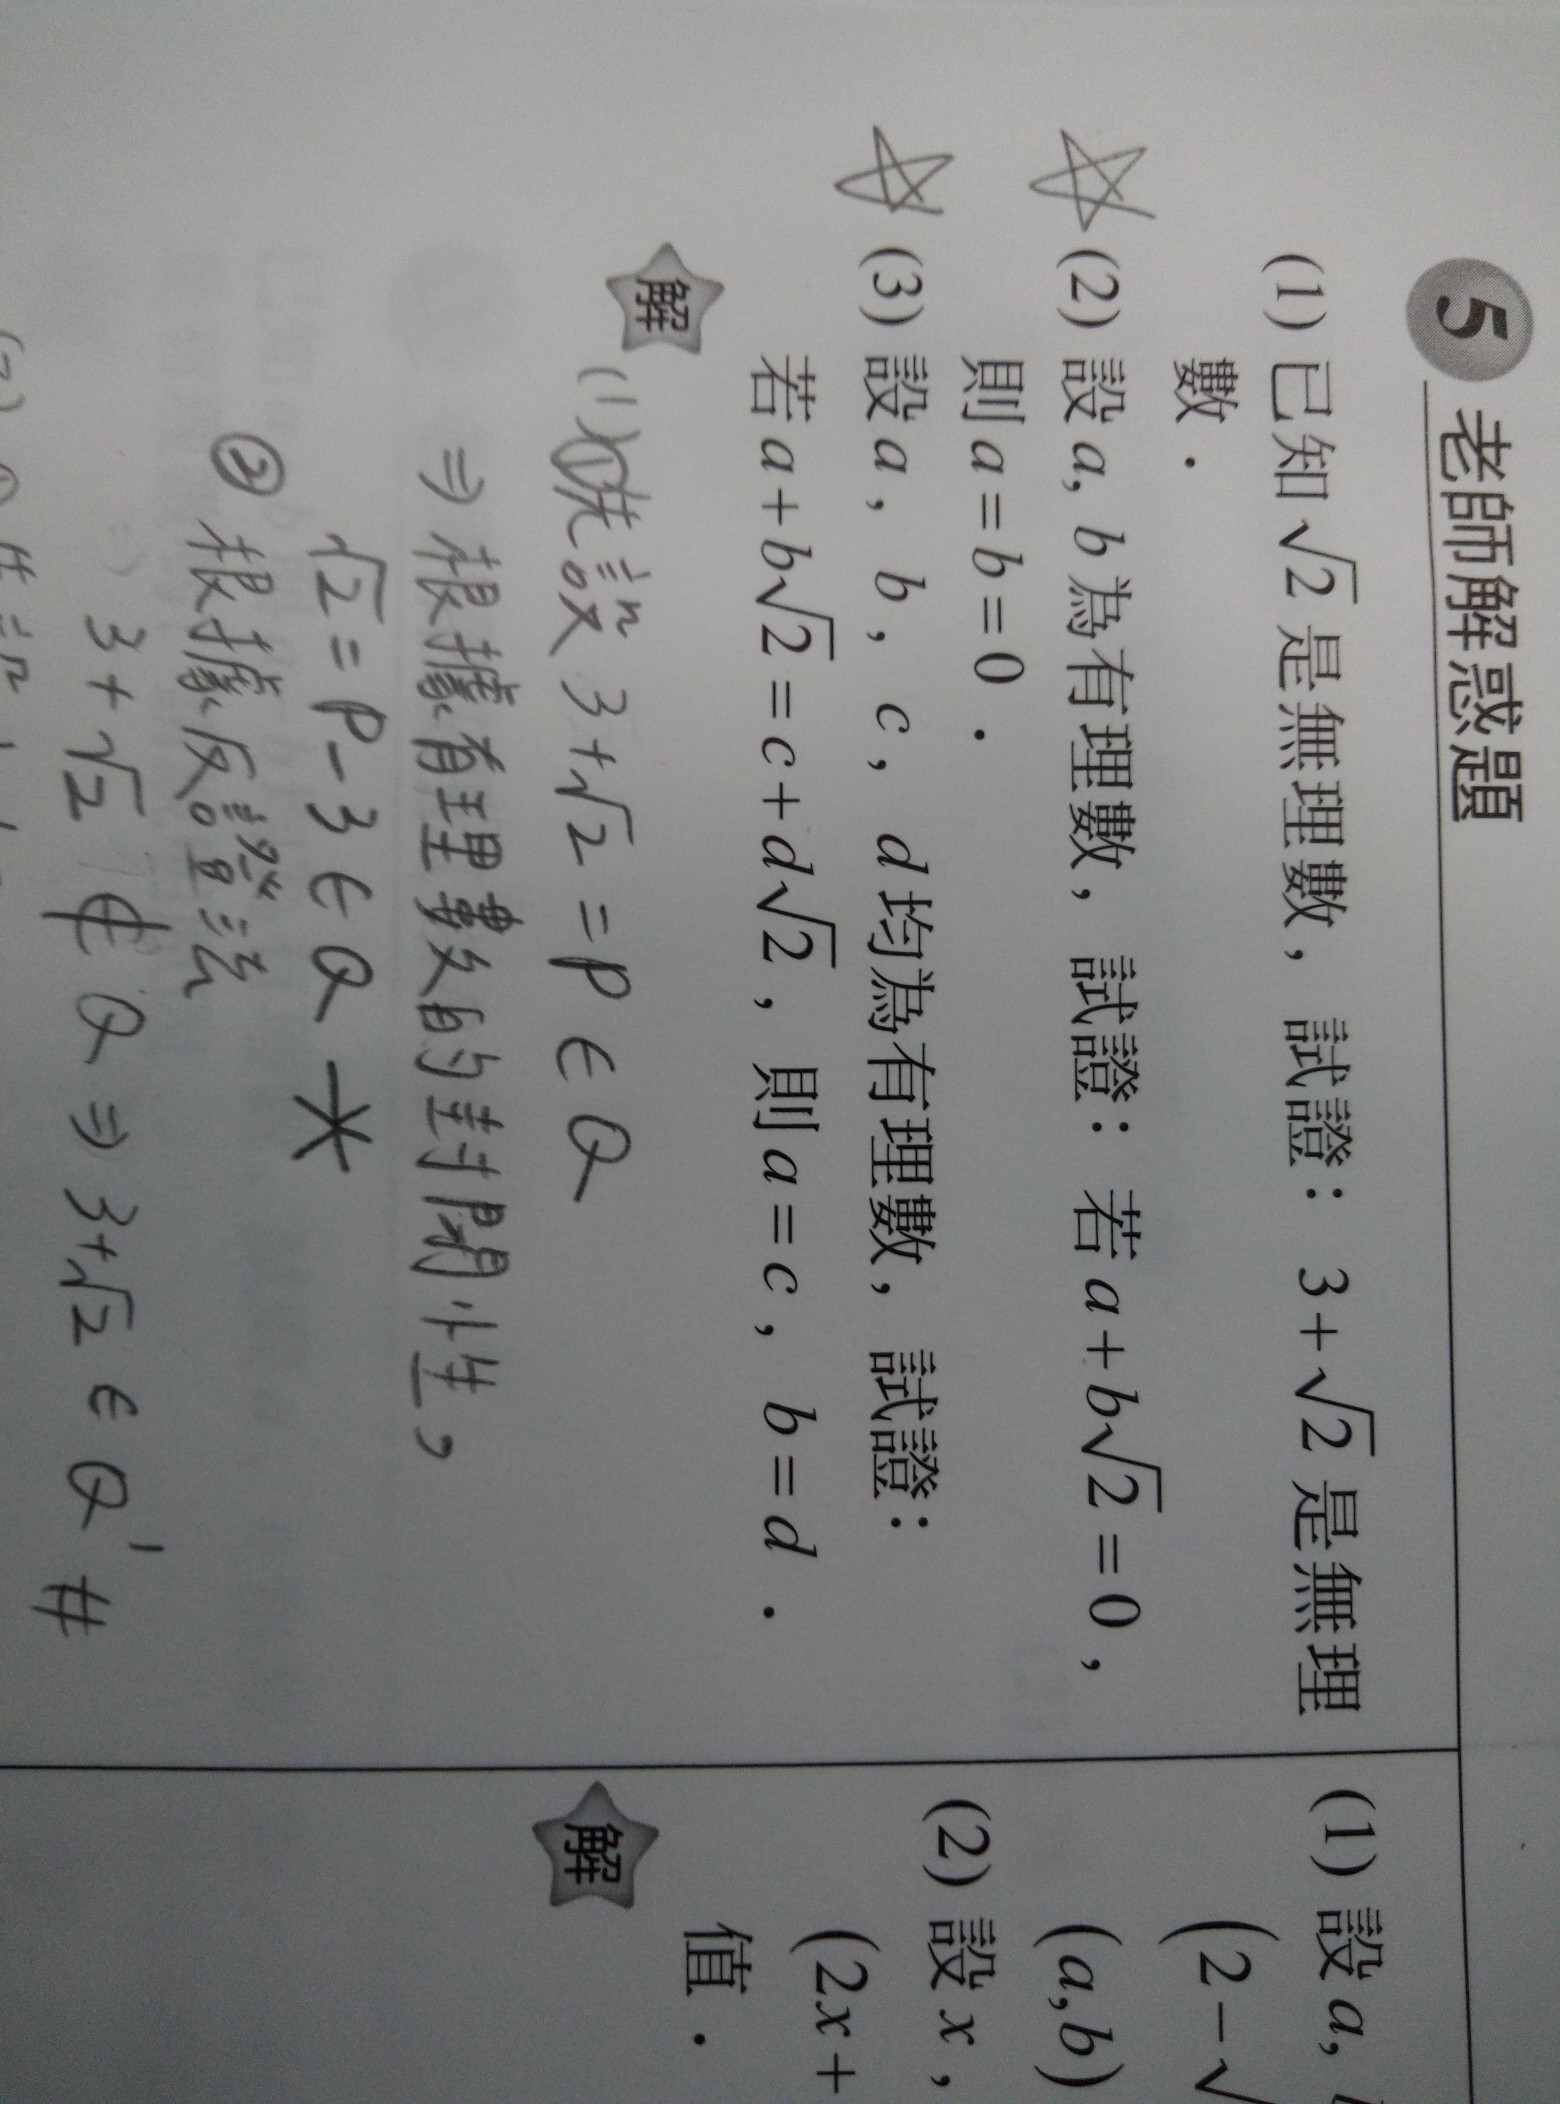 5 老師解惑題
(1) 已知√2 是無理數，試證：3+√2 是無理
數．
(2) 設a, b 為有理數，試證：若a+b√2=0，
則a=b=0．
(3) 設a，b，c，d 均為有理數，試證：
若a+b√2=c+d√2，則a=c，b=d．
解
(1)①先設 3+√2 = P ∈ Q
⇒ 根據有理數的封閉性，
√2 = P - 3 ∈ Q ＊
② 根據反證法
3+√2 ∉ Q ⇒ 3+√2 ∈ Q' #
(1) 設a,
(2-√
(a,b)
(2) 設x，
(2x+
值．
解